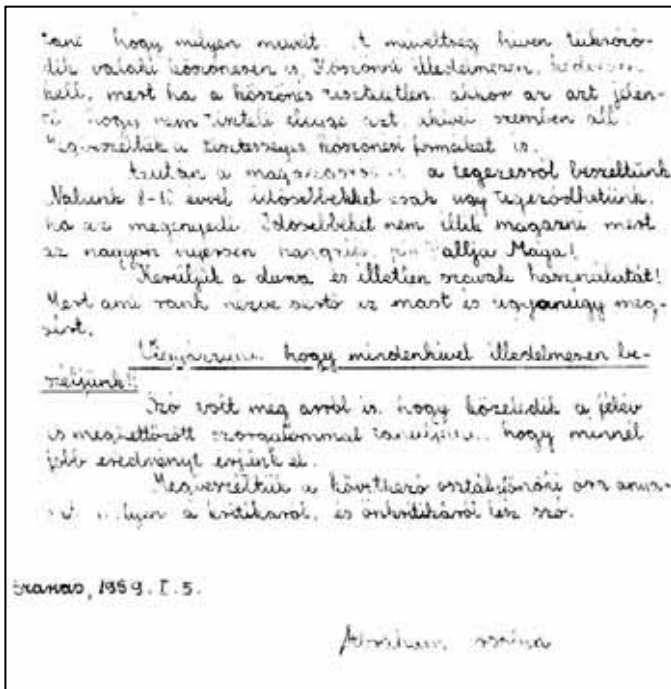 tani hogy milyen művelt. A műveltség híven tükröző-
dik valaki köszönésén is. Köszönni illedelmesen, kedvesen
kell, mert ha a köszönés tiszteletlen, akkor az azt jelen-
ti, hogy nem tiszteli eléggé azt, akivel szemben áll.
Megbeszéltük a tisztességes köszönési formákat is.
Ezután a magázásról a tegezésről beszéltünk
Nálunk 8-10 évvel idősebbekkel csak úgy tegeződhetünk,
ha az megengedi. Idősebbeket nem illik magázni mert
az nagyon nyersen hangzik, Hallja Maga!
Kerüljük a durva és illetlen szavak használatát!
Mert ami ránk nézve sértő az mást és ugyanúgy meg-
sért.
Vigyázzunk, hogy mindenkivel illedelmesen be-
széljünk!
Szó volt még arról is, hogy közeledik a félév
is megkettőzött szorgalommal tanuljunk, hogy minnél
jobb eredményt érjünk el.
Megbeszéltük a következő osztályfőnöki óra anya-
gát melyen a kritikáról, és önkritikáról lesz szó.
1959. I. 5.